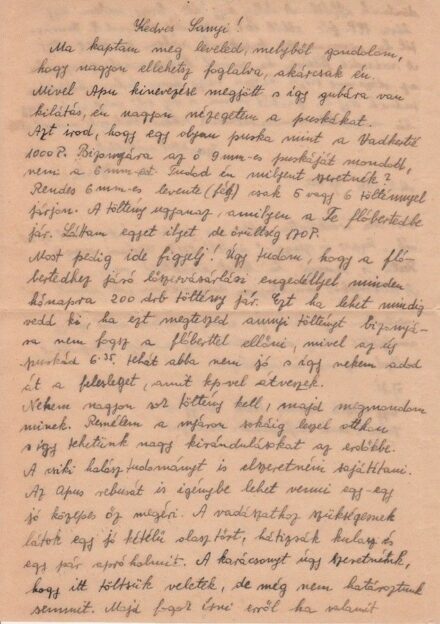 Kedves Sanyi!
Ma kaptam meg leveled, melyből gondolom,
hogy nagyon ellehetsz foglalva, akárcsak én.
Mivel Apu kinevezése megjött s így gubára van
kilátás, én nagyon nézegetem a puskákat.
Azt irod, hogy egy olyan puska mint a Vadkerté
1000 P. Bizonyára az ő 9 mm-es puskáját mondod,
nem a 6 mm-est. Tudod én milyent szeretnék?
Rendes 6 mm-es levente csak 5 vagy 6 tölténnyel
járjon. A töltény ugyanaz, amilyen a Te flóbertedbe
jár. Láttam egyet ilyet de őrültség 170 P.
Most pedig ide figyelj! Úgy tudom, hogy a fló-
bertedhez járó lőszervásárlási engedéllyel minden
hónapra 200 drb töltény jár. Ezt ha lehet mindig
vedd ki, ha ezt megteszed annyi töltényt bizonyá-
ra nem fogsz a flóberttel ellőni, mivel az új
puskád 6.35, tehát abba nem jó s így nekem adod
át a felesleget, amit kp-vel átveszek.
Nekem nagyon sok töltény kell, majd megmondom
minek. Remélem a nyáron sokáig leszel otthon
s így tehetünk nagy kirándulásokat az erdőkbe.
A halász tudományt is elszeretném sajátítani.
Az Apus is igénybe lehet venni egy-egy
jó közepes őz megéri. A vadászathoz szükségesnek
látok egy jó kétélű olasz tőrt, hátizsák kulacs és
egy pár apró holmit. A karácsonyt úgy szeretnénk,
hogy itt töltsük veletek, de még nem határoztunk
semmit. Majd fogok írni erről ha valamit